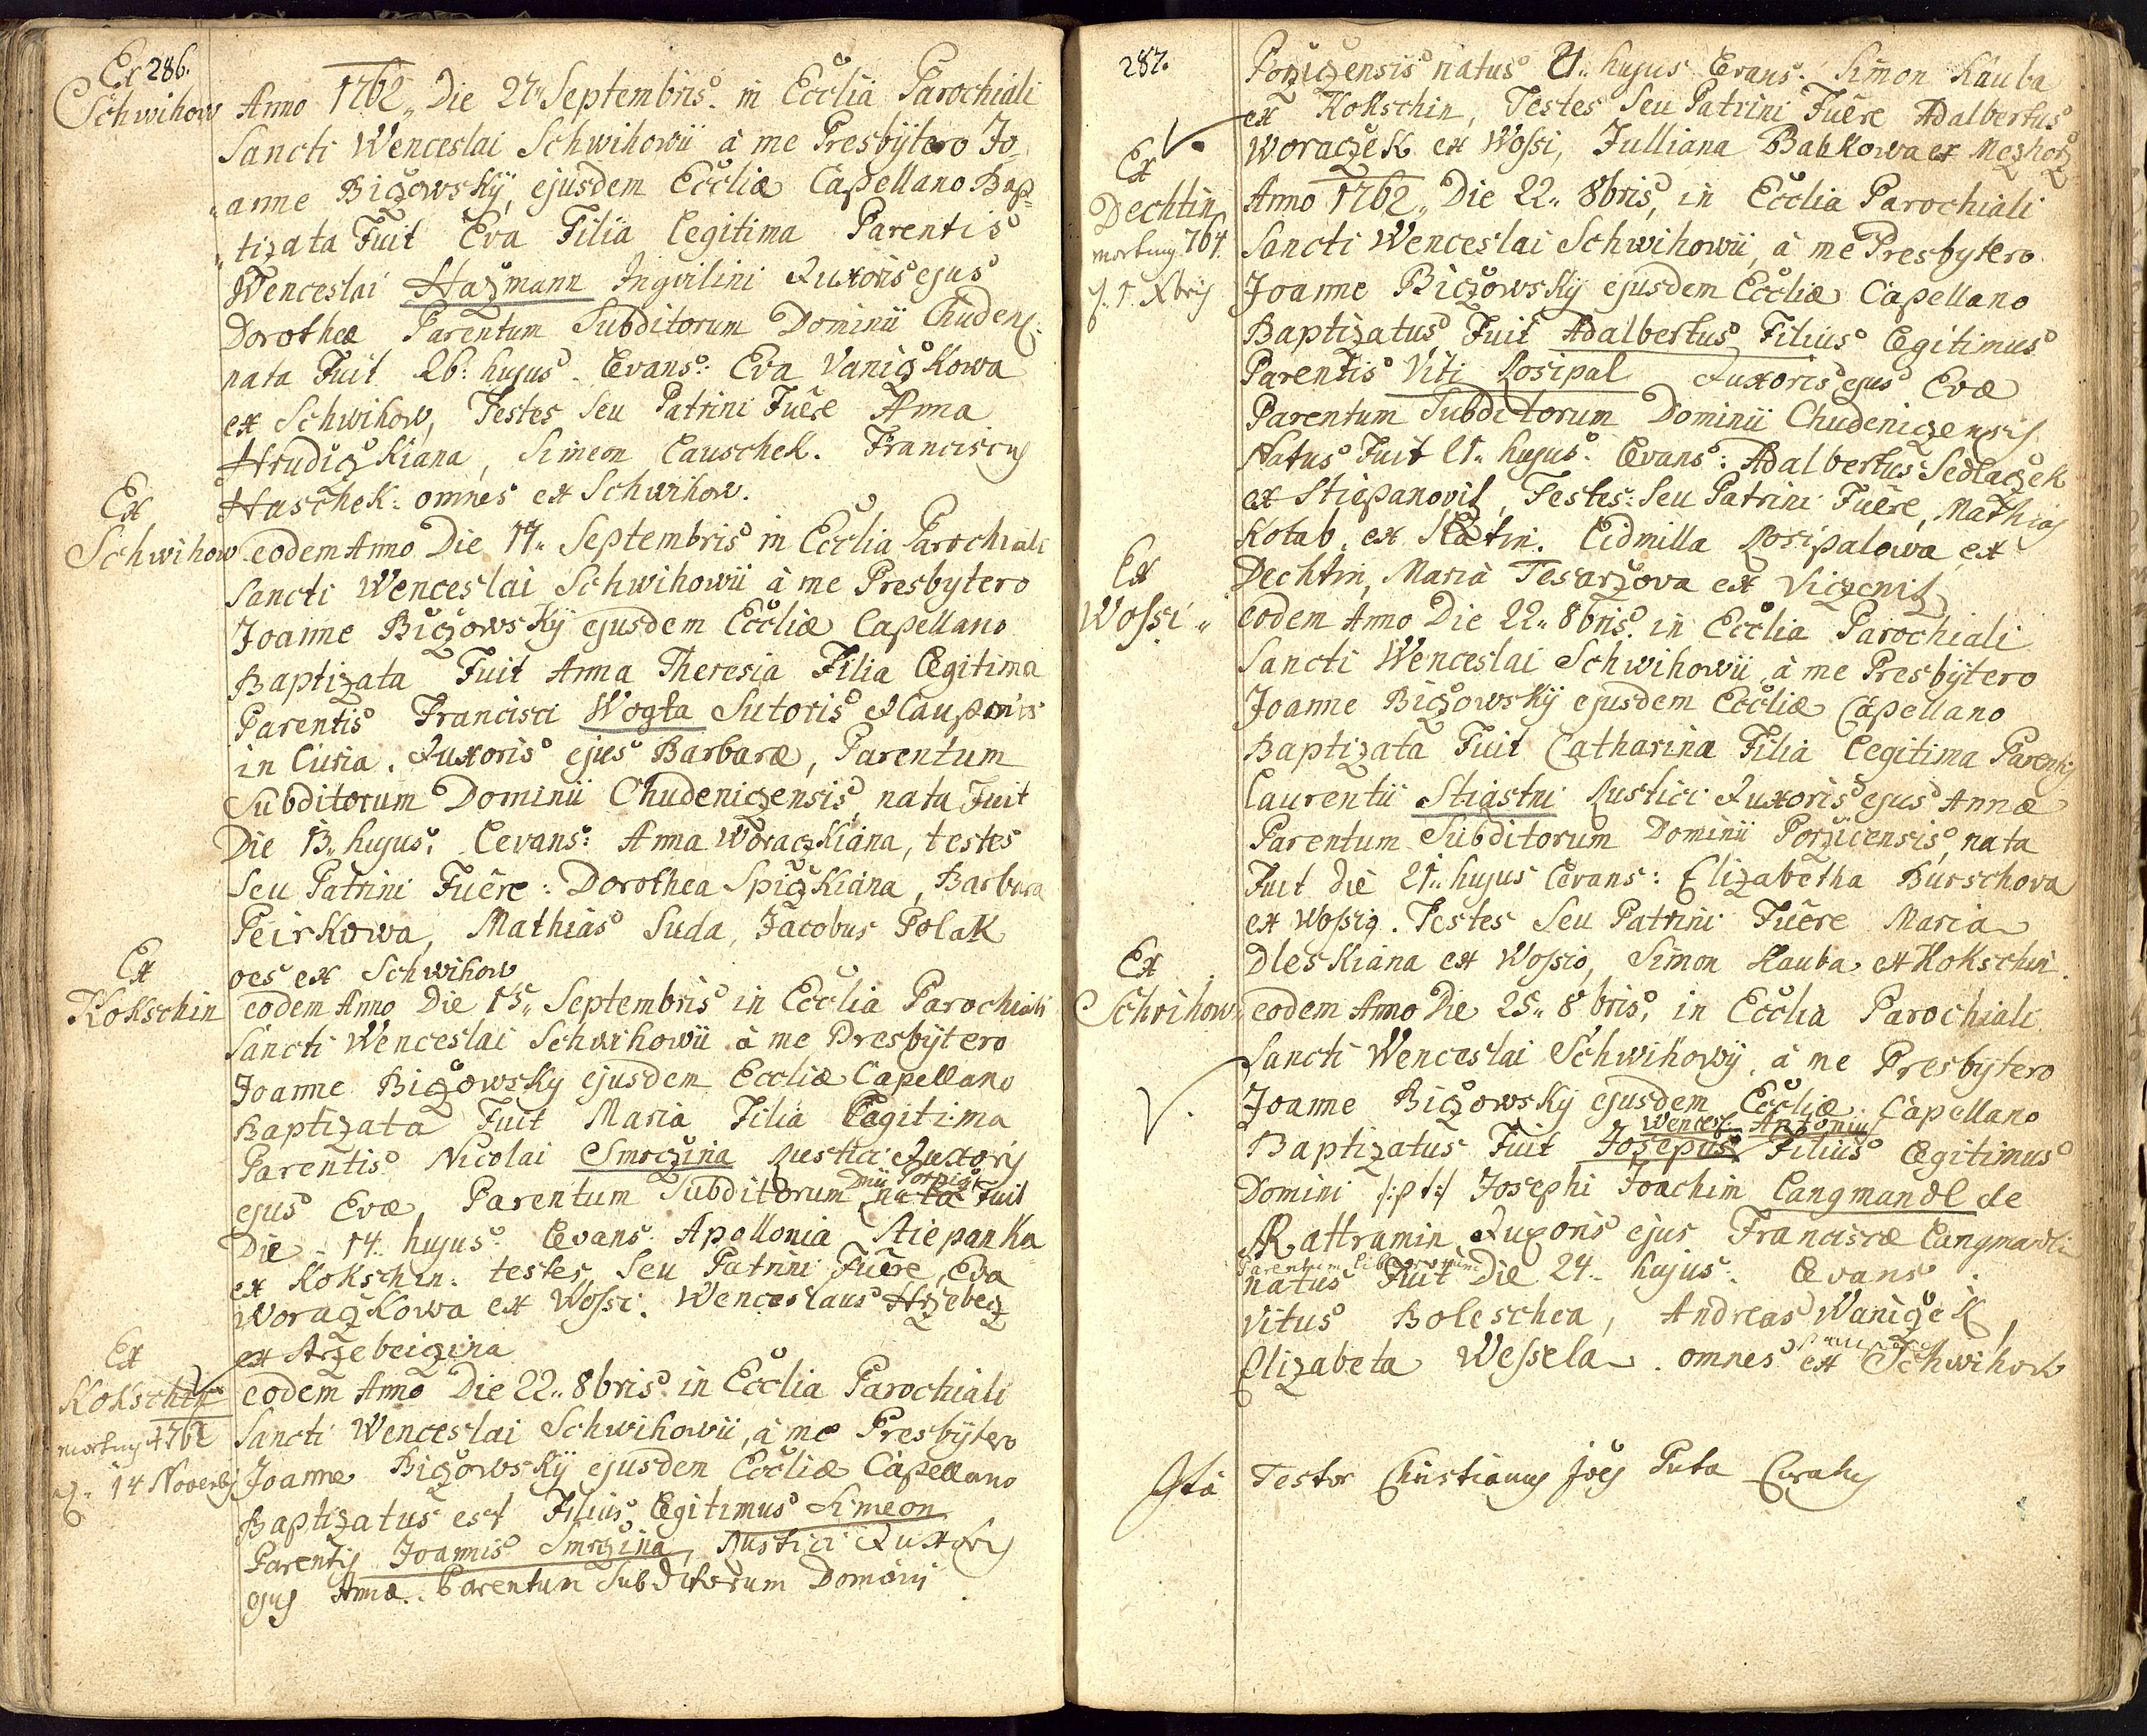 Ex 286.
Schwihow
Anno 1762 Die 27 Septembris in Ecclia Parochiali
Sancti Wenceslai Schwihowii à me Presbÿtero Jo-
anne Biczowskÿ, ejusdem Eccliæ Capellano Bap=
tizata Fuit Eva Filia Legitima Parentis
Wenceslai Hazmann Inqvilini & uxoris ejus
Dorotheæ Parentum Subditorum Dominii Chudens:
nata Fuit 26. hujus Levans: Eva Vaniczkowa
ex Schwihow, Testes Seu Patrini Fuêre Anna
Hrudiczkiana, Simeon Lauschek. Franciscus
Haschek: omnes ex Schwihow.
Ex
Schwihow
eodem Anno Die 14 Septembris in Ecclia Parochiali
Sancti Wenceslai Schwihowii à me Presbytero
Joanne Biczowskÿ ejusdem Eccliæ Capellano
Baptizata Fuit Anna Theresia Filia Legitima
Parentis Francisci Wogta Sutoris & Cauponis
in Curia. & uxoris ejus Barbaræ, Parentum
Subditorum Dominii Chudeniczensis, nata Fuit
Die 13 hujus: Levans: Anna Woraczkiana, testes
Seu Patrini Fuêre: Dorothea Spiczkiana, Barbara
Peirkowa, Mathias Suda, Jacobus Polak
oes ex Schwihow
Ex
Kokschin
eodem Anno Die 15 Septembris in Ecclia Parochiali
Sancti Wenceslai Schwihowii à me Presbÿtero
Joanne Biczowskÿ ejusdem Eccliæ Capellano
Baptizata Fuit Maria Filia Legitima
Parentis Nicolai Smrczina Rustici & uxoris
Dnii Porzicz
ejus Evæ, Parentum Subditorum nata Fuit
Die 14 hujus Levans: Apollonia Stiepanka
ex Kokschin. testes, Seu Patrini Fuêre, Eva
Woraczkowa ex Wossi. Wenceslaus Hrzebecz
ex Hrzebeiczina
Ex
Kokschin
mortuus 1762
14 Novembris
eodem Anno Die 22 8bris in Ecclia Parochiali
Sancti Wenceslai Schwihowii, à me Presbÿtero
Joanne Biczowskÿ ejusdem Eccliæ Capellano
Baptizatus est Filius Legitimus Simeon
Parentis Joannis Smrczina, Rustici & uxoris
ejus Annæ Parentum Subditorum Dominii
287.
Porziczensis natus 21 hujus Levans: Simon Kauba
ex Kokschin, Testes Seu Patrini Fuêre Adalbertus
Woraczek ex Wossi, Julliana Babkowa ex Mezhorz
Ex
Dechtin
mortuus 764
1. Xbris
Anno 1762 Die 22 8bris, in Ecclia Parochiali
Sancti Wenceslai Schwihowii, à me Presbytero
Joanne Biczowskÿ ejusdem Eccliæ Capellano
Baptizatus Fuit Adalbertus Filius Legitimus
Parentis Viti Rosipal & uxoris ejus Evæ
Parentum Subditorum Dominii Chudeniczensis
Natus Fuit 21 hujus. Levans: Adalbertus Sedlaczek
ex Stiepanovitz, Testes: Seu Patrini Fuêre, Mathias
Kotab, ex Slatin. Lidmilla Rosipalowa ex
Dechtin, Maria Tesarzova ex Viczenitz
Ex
Wossi
eodem Anno Die 22 8bris in Ecclia Parochiali
Sancti Wenceslai Schwihowii, à me Presbÿtero
Joanne Biczowskÿ ejusdem Eccliæ Capellano
Baptizata Fuit Catharina Filia Legitima Parentis
Laurentii Stiastni Rustici & uxoris ejus Annæ
Parentum Subditorum Dominii Porzicensis, nata
Fuit die 21 hujus Levans: Elizabetha Burschova
ex Wossig. Testes Seu Patrini Fuêre Maria
Dleskiana ex Wossio, Simon Kauba ex Kokschin.
Ex
Schvihow
eodem Anno Die 25 8bris, in Ecclia Parochiali
Sancti Wenceslai Schwihowÿ, à me Presbytero
Joanne Biczowskÿ ejusdem Eccliæ Capellano
Wencesl. Antonius
Baptizatus Fuit Josepus Filius Legitimus
Domini /:p t:/ Josephi Joachim Langmandl de
Rattramin & uxoris ejus Franciscæ Langmandlin
Parentum Liberorum
natus Fuit Die 24 hujus. Levans.
Vitus Boleschea, Andreas Waniczek,
Elizabeta Wessela. omnes ex Schwihow
Ita Testor Christianus Joês Puta Curatus